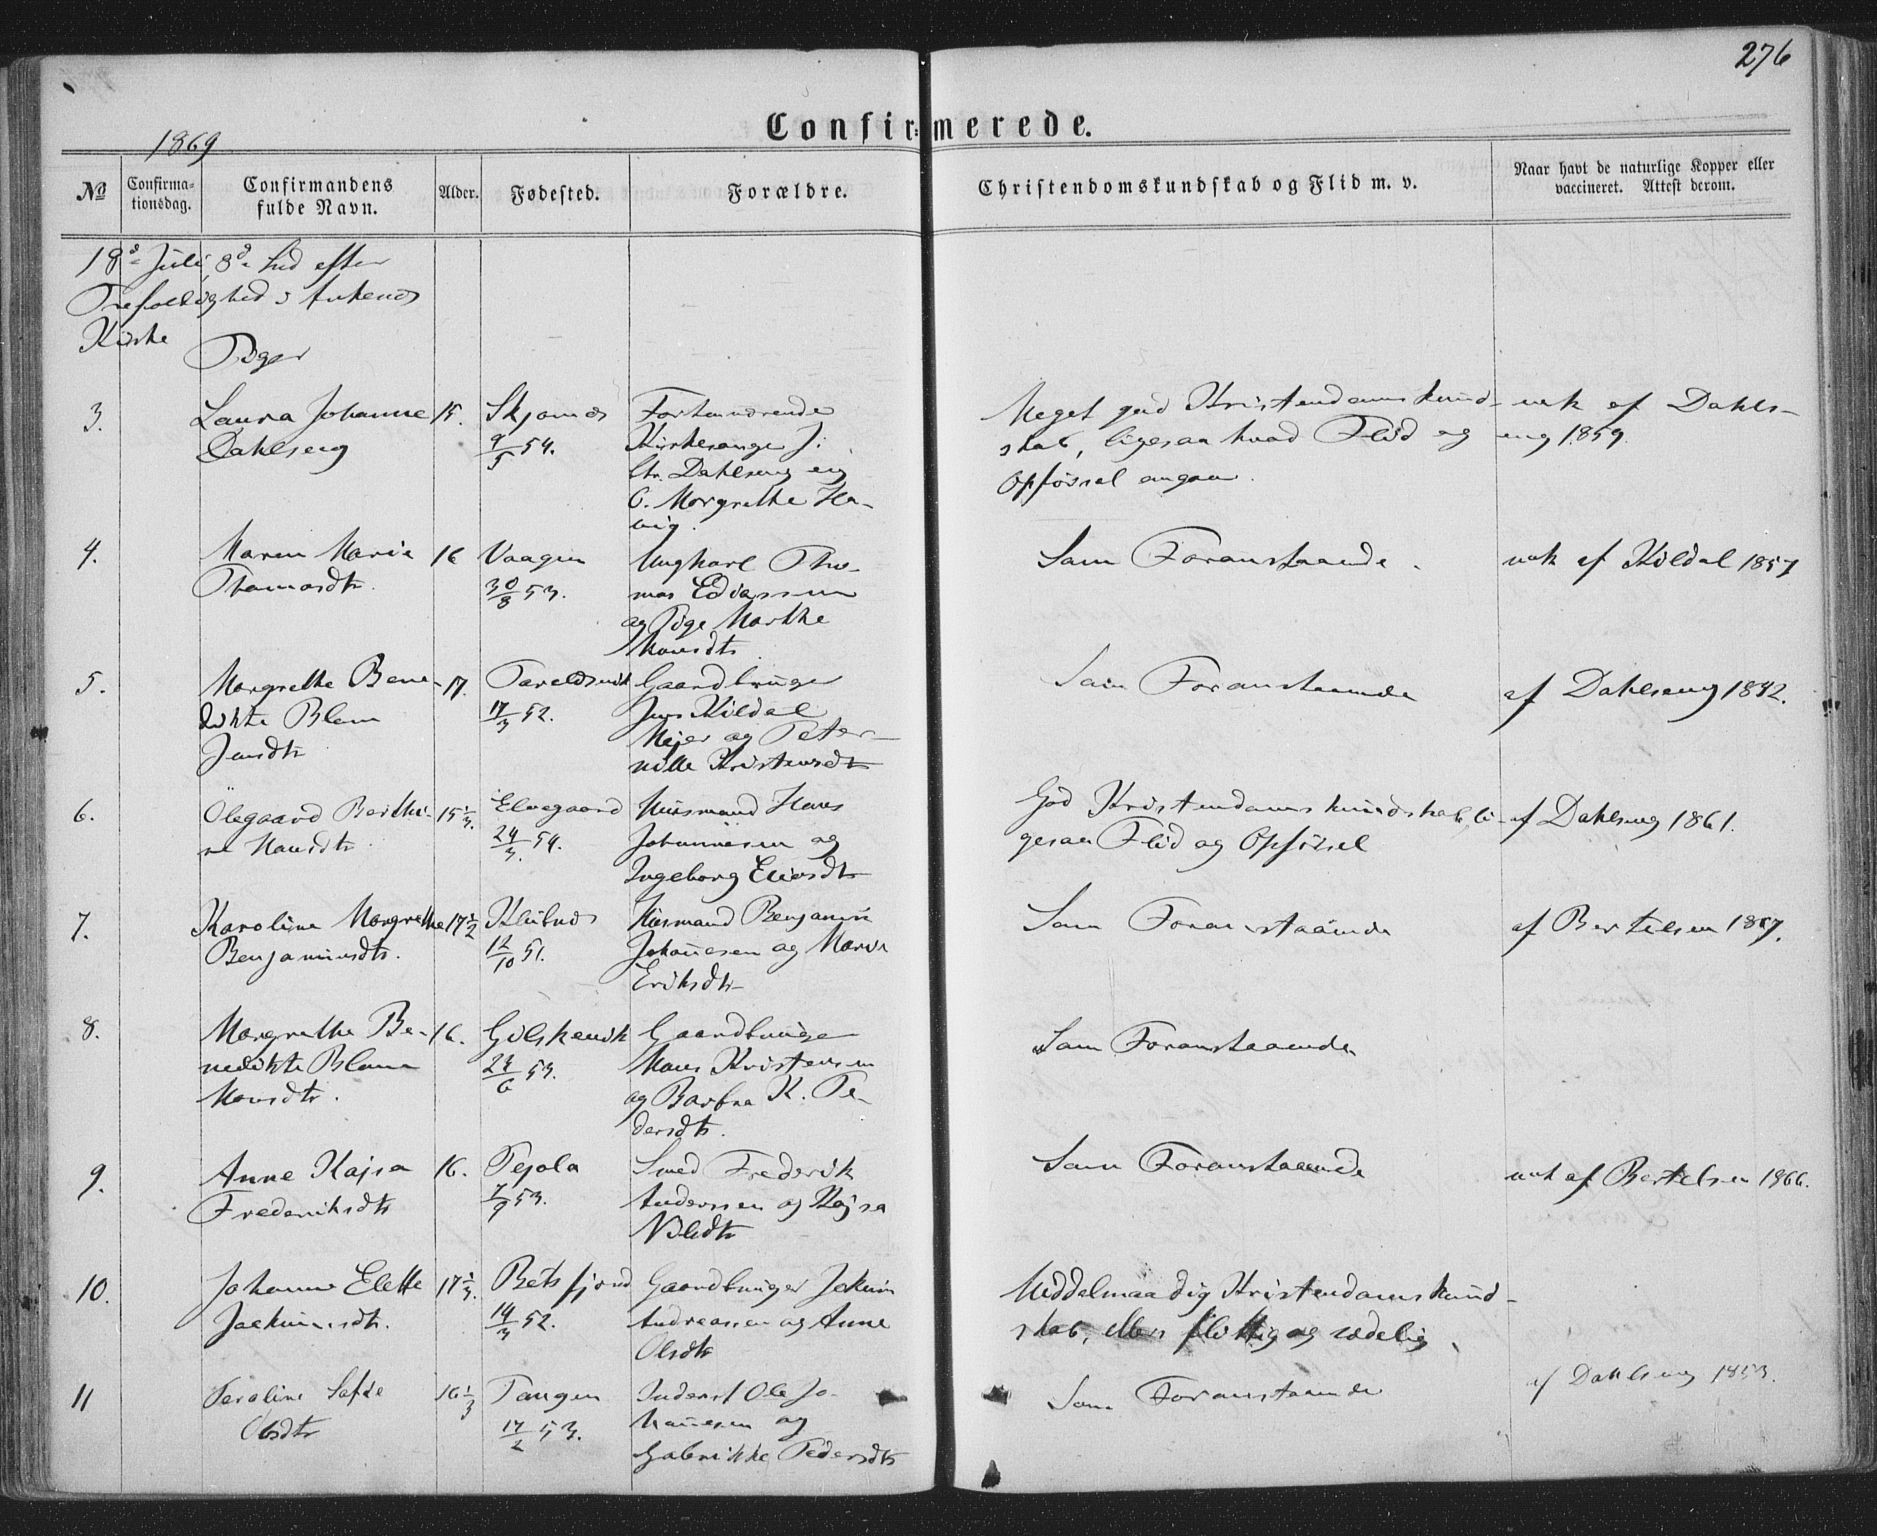 276
Confirmerede.
1869
No
Confirmationsdag.
Confirmandens fulde Navn.
Alder.
Fødested.
Forældre.
Christendomskundskab og Flid m. v.
Naar havt de naturlige Kopper eller vaccineret. Attest derom.
18de Juli, 8de Sød efter
Trefoldighed i Ankenes
Kirke
Piger
3.
Laura Johanne
Dahlseng
15.
Skjomen
9/5 54.
Forhenværende
Kirkesanger J.
Chr. Dahlseng og
C. Margrethe Ha-
vig.
Meget god Kristendomskund-
skab, ligesaa hvad Flid og
Opførsel angaar.
vak af Dahls-
eng 1859.
4.
Maren Marie
Thomasdtr.
16
Vaagen
30/8 53.
Ungkarl Tho-
mas Ediassen
og Pige Marthe
Monsdtr.
Som Foranstaaende.
vak af Kildal 1857
5.
Margrethe Bene-
dikte Blom
Jensdtr
17.
Taraldsvik
17/3 52.
Gaardbruger
Jens Kildal
Mejer og Peter-
nille Kristensdtr
Som Foranstaaende
af Dahlseng 1852.
6.
Olegaard Berthi-
ne Hansdtr.
15 1/3.
Elvegaard
24/3. 54.
Husmand Hans
Johannesen og
Ingeborg Eliasdtr
God Kristendomskundskab, li-
gesaa Flid og Opførsel
af Dahlseng 1861.
7.
Karoline Margrethe
Benjaminsdtr.
17 1/2
Klubnes
12/10 51.
Husmand Benjamin
Johanesen og Maria
Eriksdtr
Som Foranstaaende
af Bertelsen 1857.
8.
Margrethe Be-
nedikte Blom
Monsdtr.
16.
Gilskevik
24/6 53.
Gaardbruger
Mons Kristensen
og Barbra K. Pe-
dersdtr.
Som Foranstaaende
9.
Anne Kajsa
Frederiksdtr
16.
Pejola
7/9 53.
Smed Frederik
Anderssen og Kajsa
Nilsdtr
Som Foranstaaende
vak af Bertelsen 1866.
10.
Johanne Elette
Joakimsdtr.
17 1/3.
Beisfjord
14/3 52.
Gaardbruger Joakim
Andreassen og Anne
Olsdtr
Middelmaadig Kristendomskund-
skab, ellers flittig og sædelig.
11
Seraline Sofie
Olsdtr
16 1/3
Tangen
17/2 53.
Inderst Ole Jo-
hanesen og
Gabrikke Pedersdtr
Som Foranstaaende
af Dahlseng 1853.